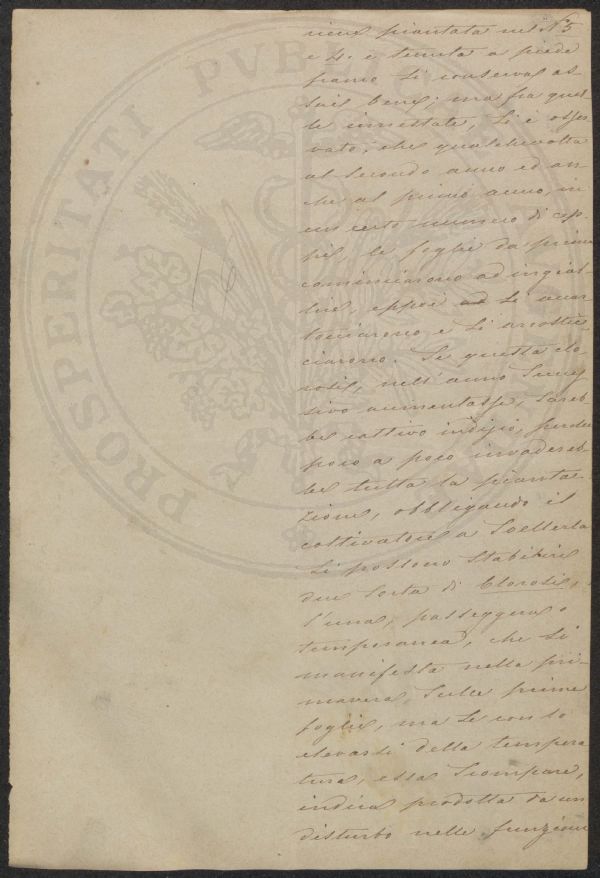 viene piantata nel N° 3
e 4. e tenuta a piede
franco si conserva as-
sai bene; ma fra quel-
le innestate, si è osser-
vato, che qualchevolta
al secondo anno ed an-
che al primo anno, in
un certo numero di cep-
pi, le foglie da prima
cominciarono ad ingial-
lire, eppoi ad si accar-
tocciarono e si
ciarono. Se questa clo-
rosi, nell'anno succes-
sivo aumentasse, sareb-
be cattivo indizio, perche
poco a poco invadereb-
be tutta la pianta-
zione, obbligando il
coltivatore a svellerla
Si possono stabilire
due sorta di Clorosi,
l'una, passeggera o
temporanea, che si
manifesta nella pri-
mavera, sulle prime
foglie, ma se con lo
elevarsi della tempera
tura, essa scompare,
indica prodotta da un
disturbo nelle funzioni
16
PROSPERITATI PVBLICAE